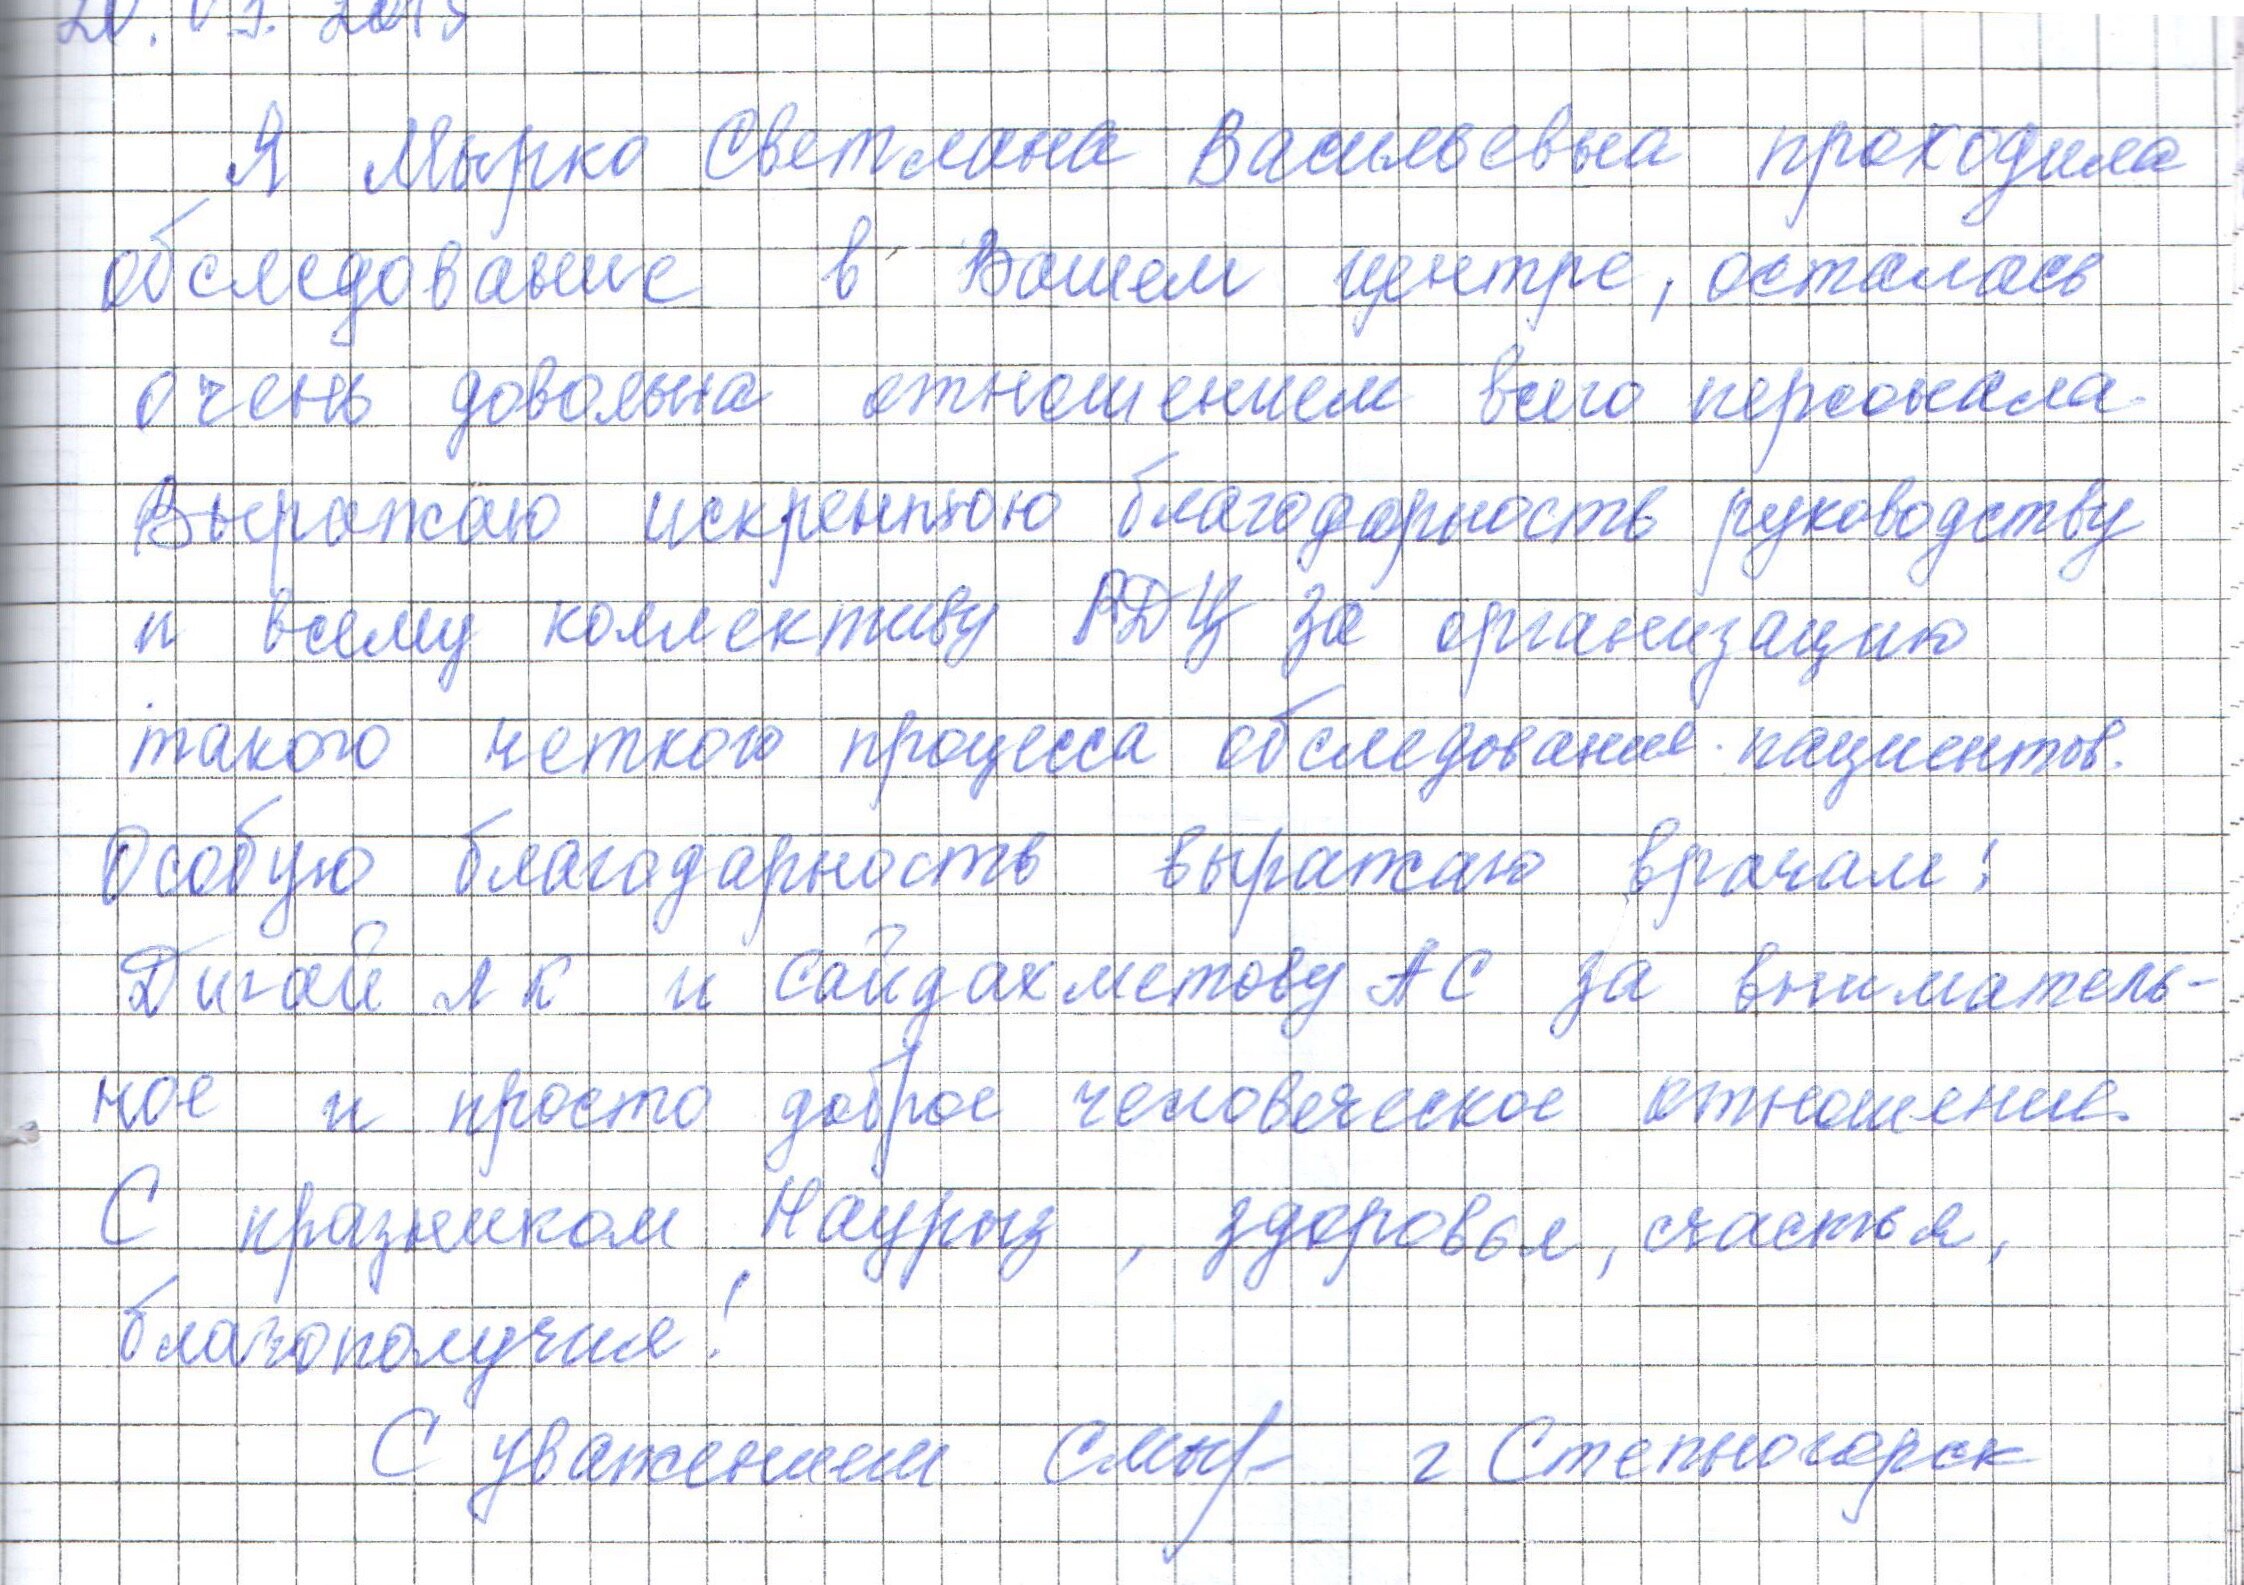 Я Мырко Светлана Васильевна проходила
обследование в Вашем центре, осталась
очень довольна отношением всего персонала.
Выражаю искреннюю благодарность руководству
и всему коллективу РДЦ за организацию
такого четкого процесса обследования пациентов.
Особую благодарность выражаю врачам:
Дигай ЛК и Сайдахметову АС за вниматель-
ное и просто доброе человеческое отношение.
С празником Наурыз, здоровья, счастья,
благополучия!
С уважением г Степногорск